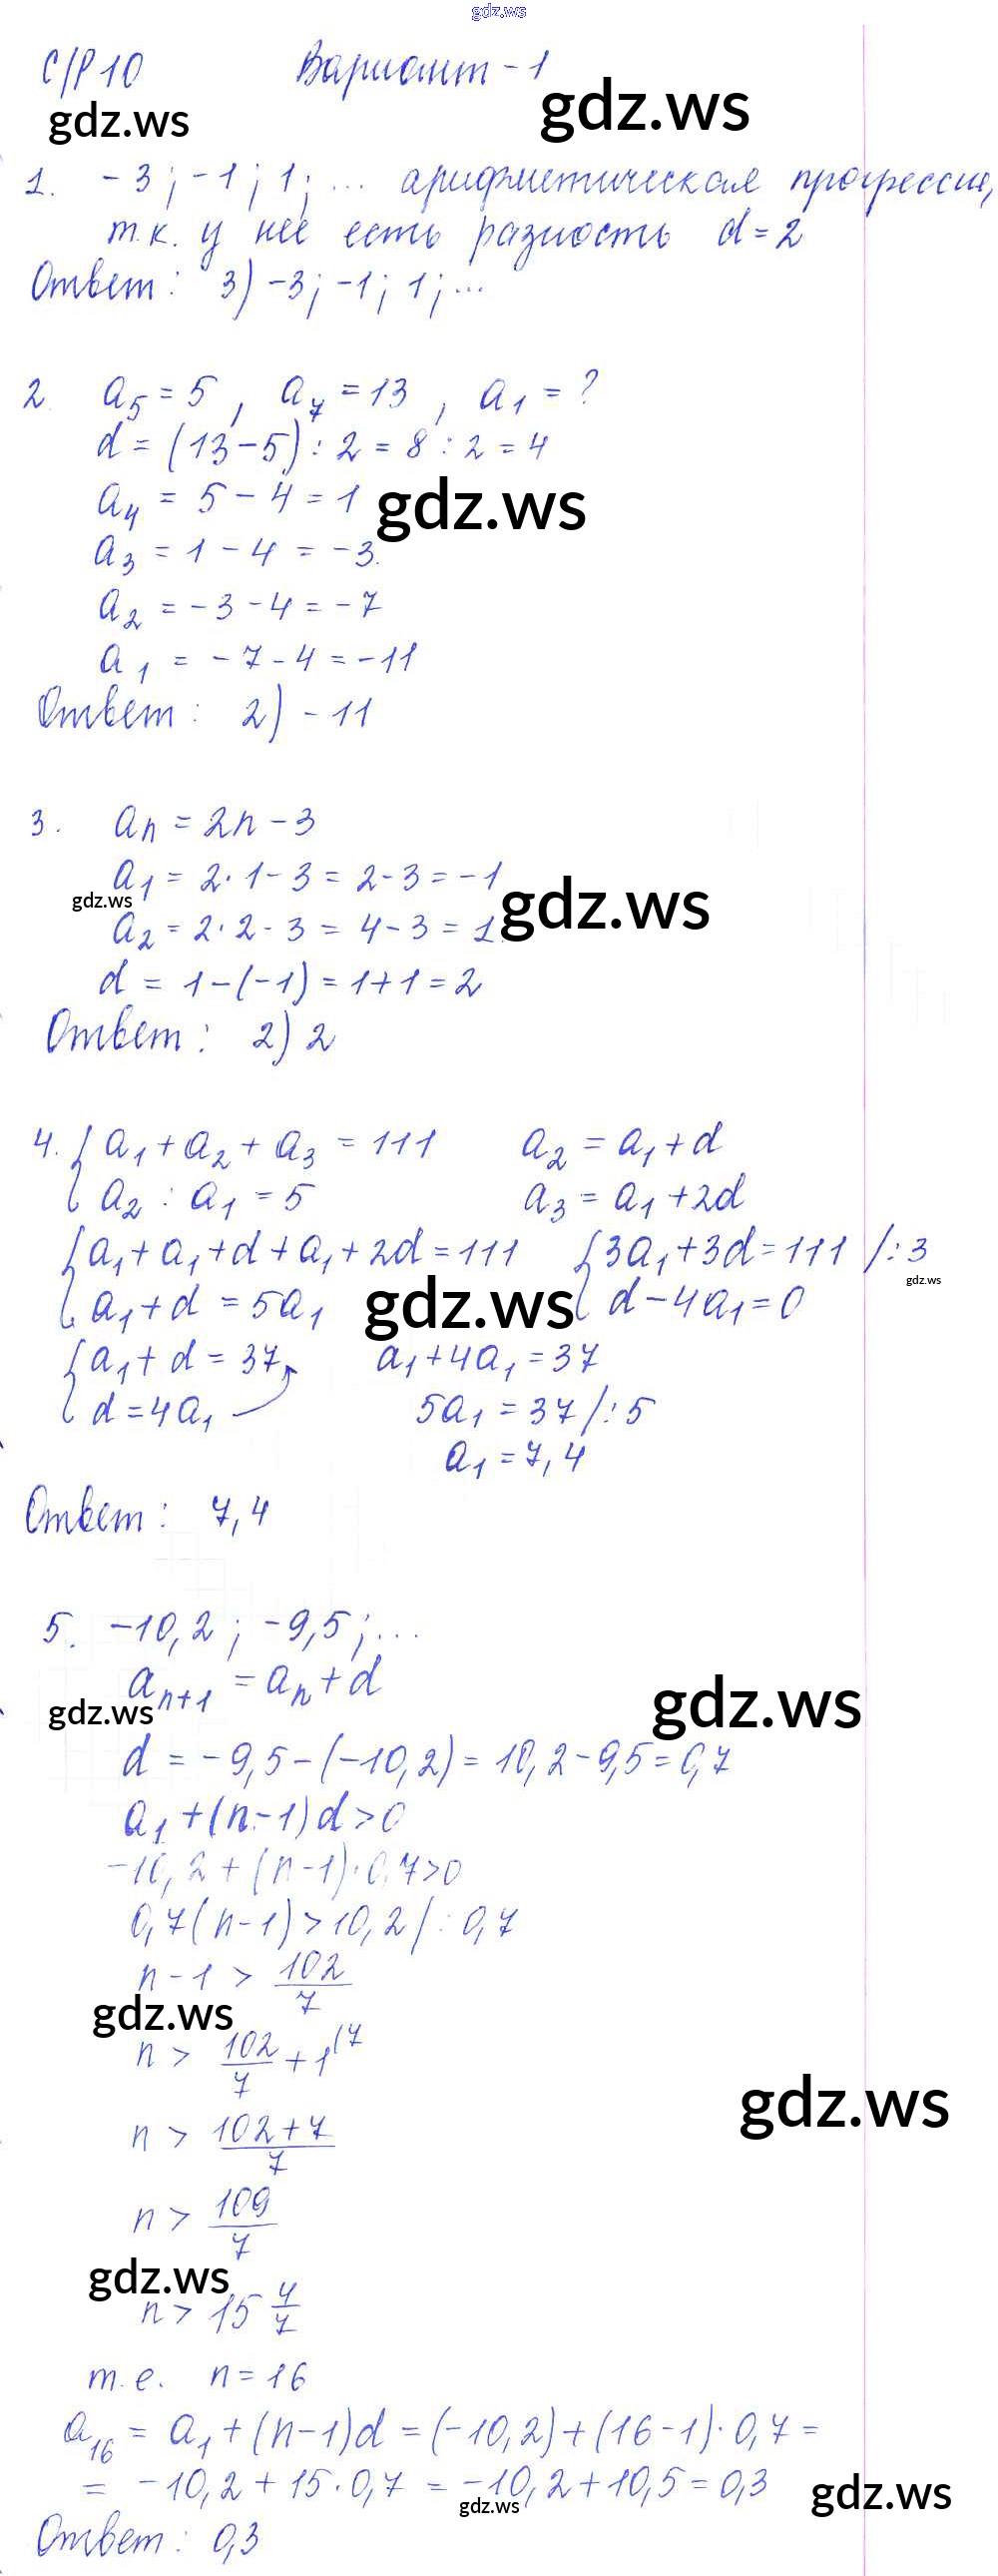 gdz.ws
С/Р 10 Вариант - 1
gdz.ws gdz.ws
1. -3; -1; 1; ... арифметическая прогрессия,
т.к. у неё есть разность d=2
Ответ: 3) -3; -1; 1; ...
2. a₅ = 5, a₇ = 13, a₁ = ?
d = (13-5) : 2 = 8 : 2 = 4
a₄ = 5 - 4 = 1
gdz.ws
a₃ = 1 - 4 = -3.
a₂ = -3 - 4 = -7
a₁ = -7 - 4 = -11
Ответ: 2) -11
3. aₙ = 2n - 3
a₁ = 2·1 - 3 = 2 - 3 = -1
gdz.ws gdz.ws
a₂ = 2·2 - 3 = 4 - 3 = 1.
d = 1-(-1) = 1+1 = 2
Ответ: 2) 2
4. { a₁ + a₂ + a₃ = 111 a₂ = a₁ + d
a₂ : a₁ = 5 a₃ = a₁ + 2d
{ a₁ + a₁ + d + a₁ + 2d = 111 { 3a₁ + 3d = 111 /: 3
gdz.ws
a₁ + d = 5a₁ gdz.ws d - 4a₁ = 0
{ a₁ + d = 37 a₁ + 4a₁ = 37
d = 4a₁ 5a₁ = 37 /: 5
a₁ = 7,4
Ответ: 7,4
5. -10,2; -9,5; ...
aₙ₊₁ = aₙ + d
gdz.ws gdz.ws
d = -9,5 - (-10,2) = 10,2 - 9,5 = 0,7
a₁ + (n-1)d > 0
-10,2 + (n-1)·0,7 > 0
0,7(n-1) > 10,2 /: 0,7
n - 1 > 102/7
gdz.ws
n > 102/7 + 1⁽⁷
gdz.ws
n > (102+7)/7
n > 109/7
gdz.ws
n > 15 4/7
т.е. n = 16
a₁₆ = a₁ + (n-1)d = (-10,2) + (16-1)·0,7 =
= -10,2 + 15·0,7 = -10,2 + 10,5 = 0,3
gdz.ws gdz.ws
Ответ: 0,3